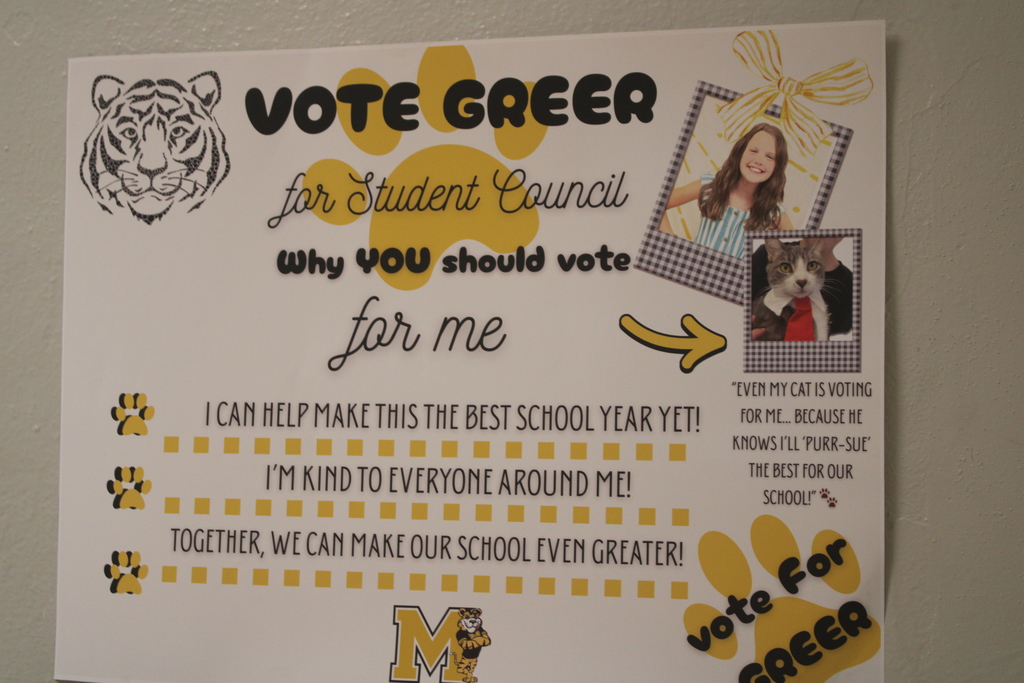 VOTE GREER
for Student Council
Why YOU should vote
for me
I CAN HELP MAKE THIS THE BEST SCHOOL YEAR YET!
I'M KIND TO EVERYONE AROUND ME!
TOGETHER, WE CAN MAKE OUR SCHOOL EVEN GREATER!
"EVEN MY CAT IS VOTING
FOR ME... BECAUSE HE
KNOWS I'LL 'PURR-SUE'
THE BEST FOR OUR
SCHOOL!"
M
vote For
GREER